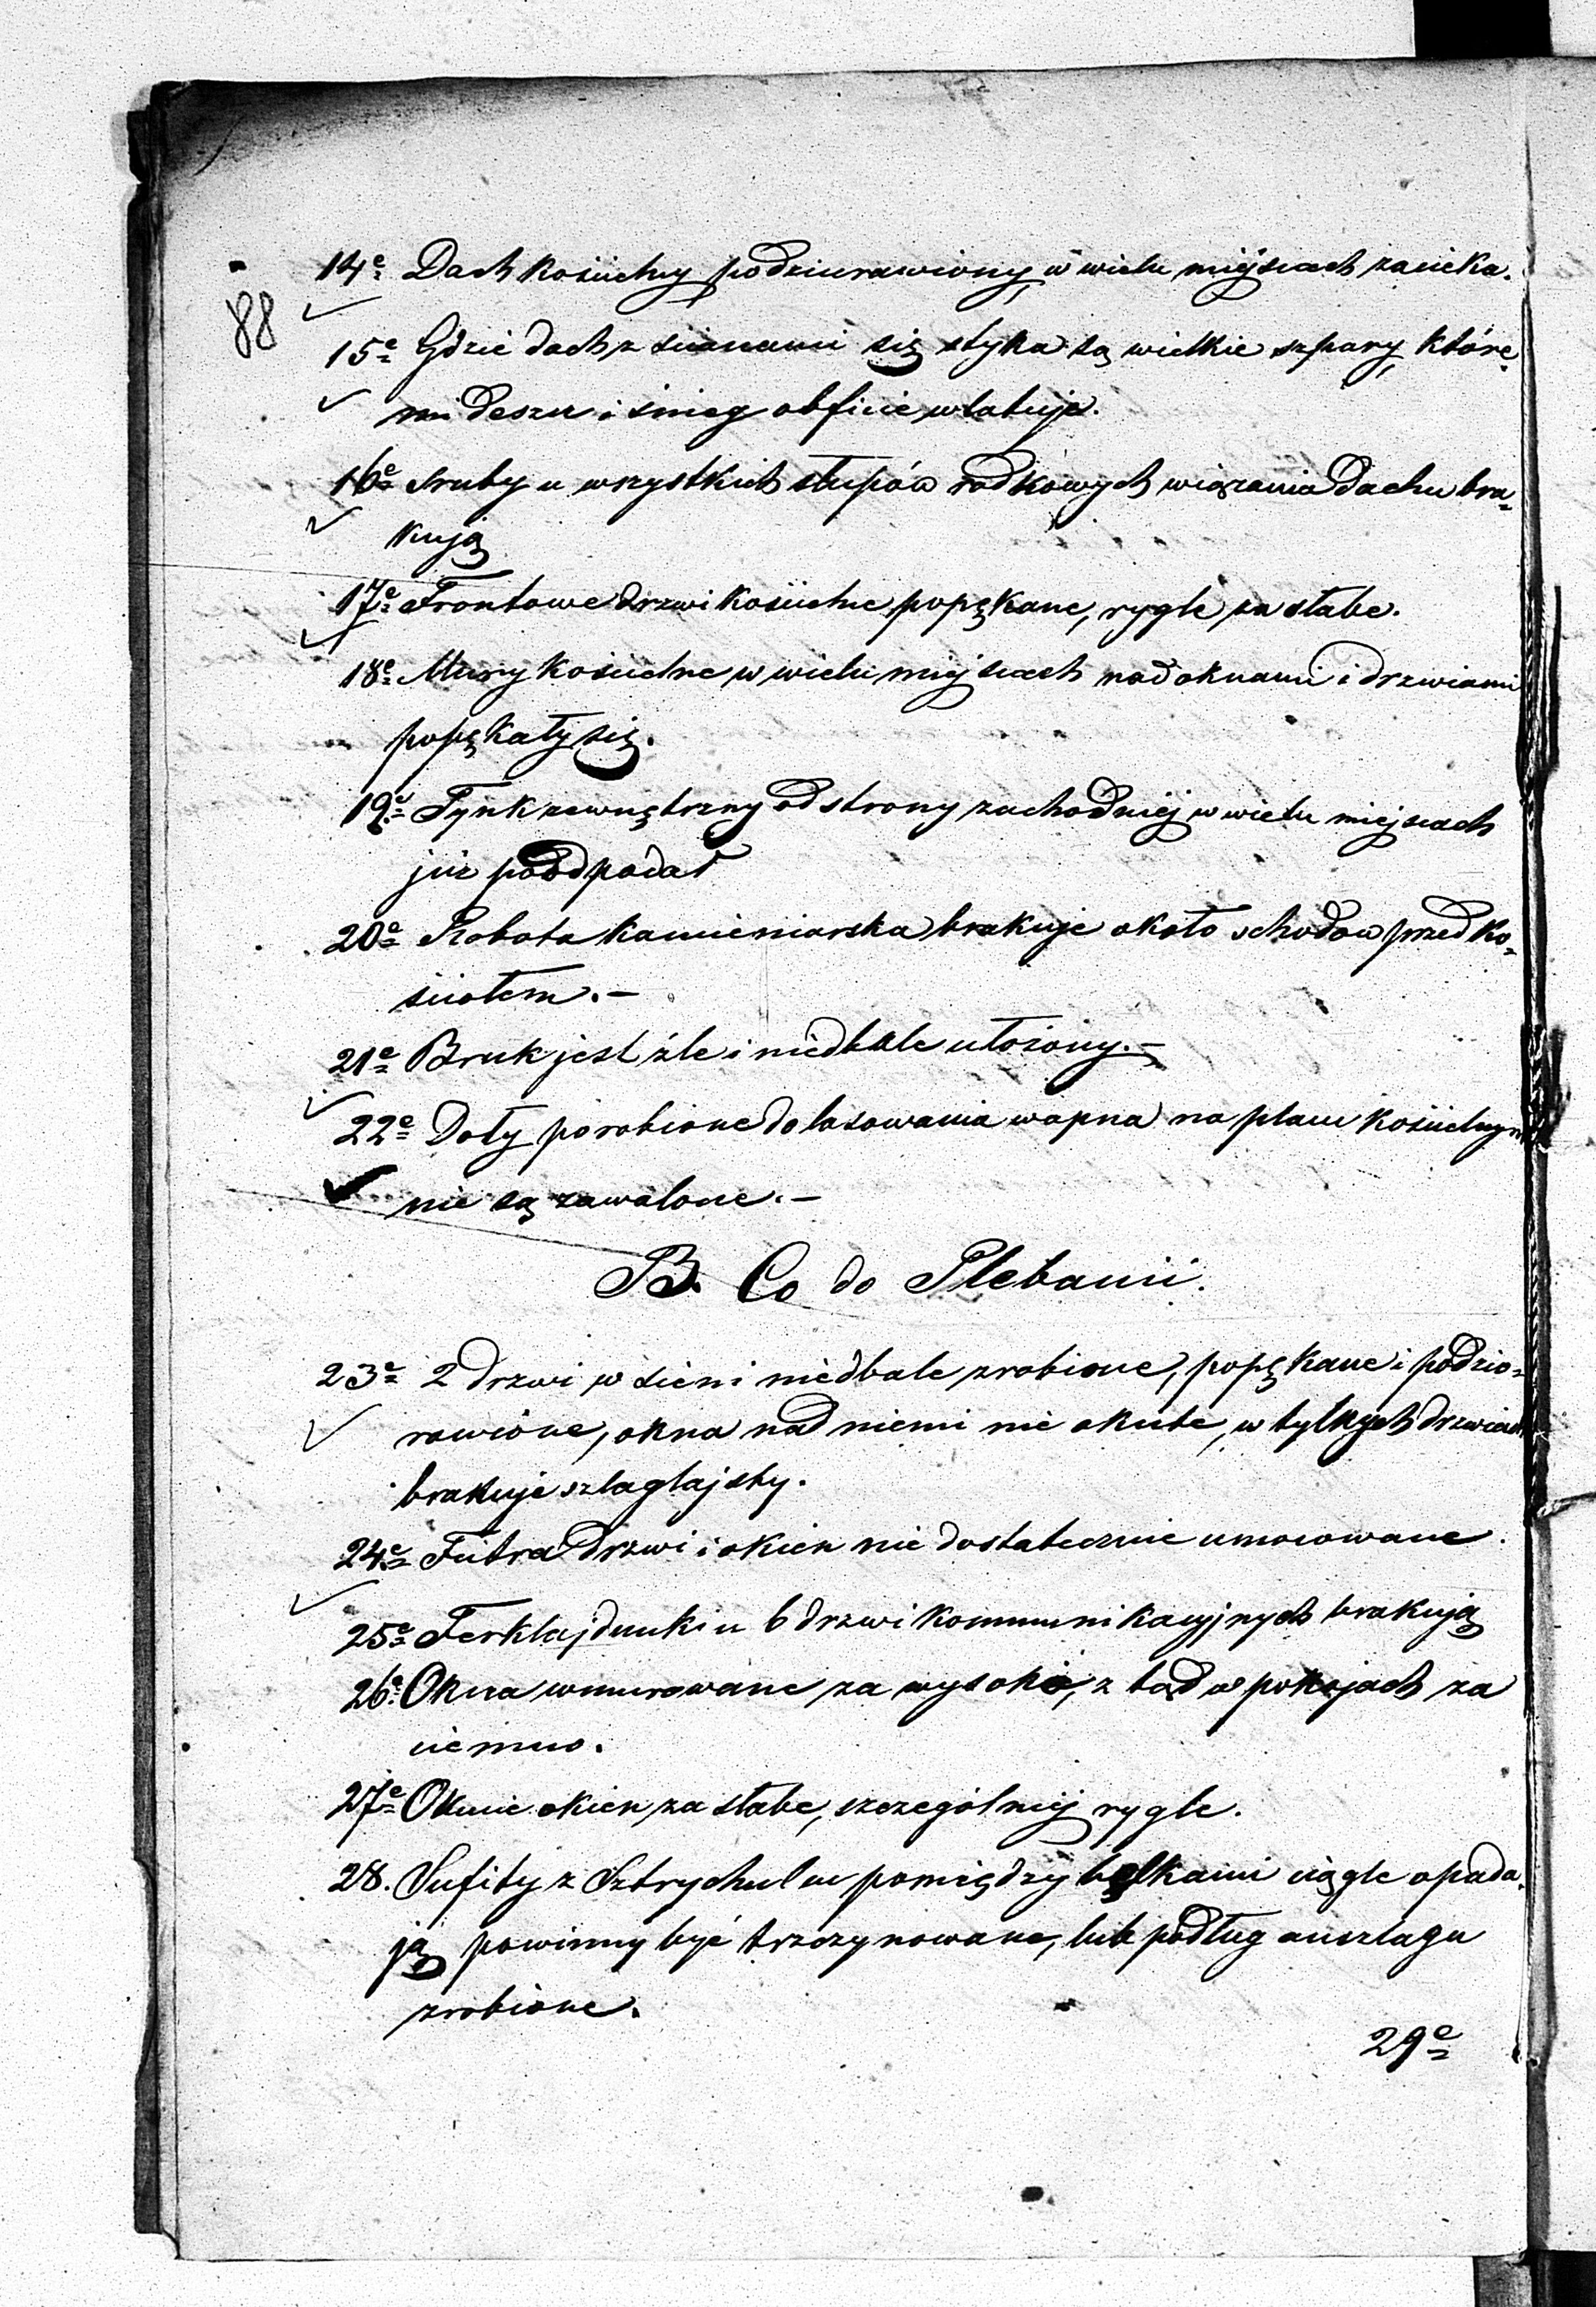 14e Dach kościelny podziurawiony w wielu miejscach zacieka.
88
15e Gdzie dach z ścianami się styka są wielkie szpary, które
mi deszcz i śnieg obficie wlatuje.
16e Sruby u wszystkich słupów rodkowych wiązania dachu bra-
kują
17e Frontowe drzwi kościelne popękane, rygle za słabe.
18e Mury kościelne w wielu miejscach nad oknami i drzwiami
popękały się.
19e Tynk zewnętrzny od strony zachodniéj w wielu miejscach
już poodpadał
20e Robota kamieniarska brakuje około schodów przed ko-
ściołem.—
21e Bruk jest źle i niedbale ułożony.—
22e Doły porobione do lasowania wapna na placu kościelnym
nie są zawalone.—
B. Co do Plebanii.
23e 2 drzwi w sieni niedbale zrobione, popękane i podziu-
rawione, okna nad niemi nie okute, w tylnych drzwiach
brakuje szlaglajsty.
24e Futra drzwi i okien nie dostatecznie umocowane.
25e Ferklajdunki u 6 drzwi kommunikacyjnych brakują
26e Okna wmurowane za wysoko, z tąd w pokojach za
ciemno.
27e Okucie okien za słabe, szczególniéj rygle.
28. Sufity z Sztrychulcu pomiędzy belkami ciągle opada-
ją powinny być trzcynowane, lub podług anszlagu
zrobione.
29e